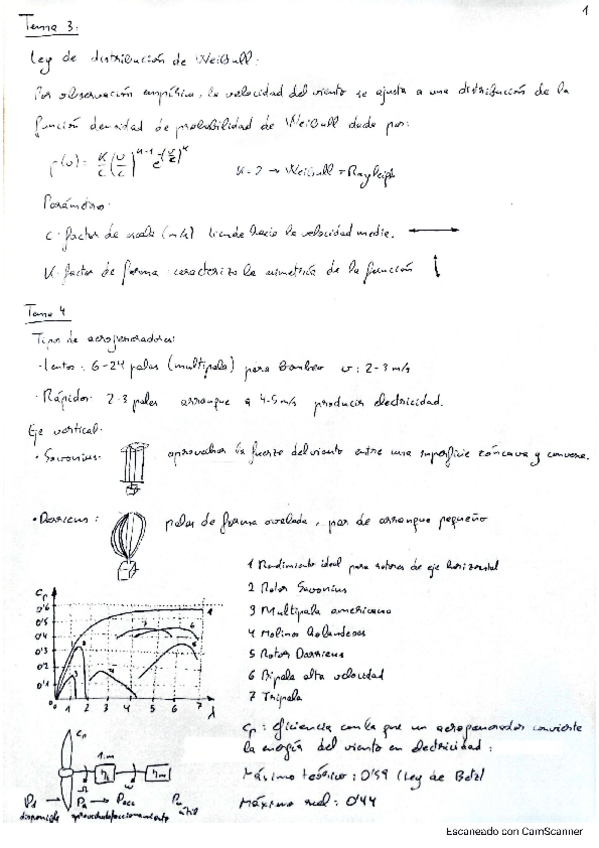 1
Tema 3:
Ley de distribución de Weibull:
Por observación empírica, la velocidad del viento se ajusta a una distribución de la
función densidad de probabilidad de Weibull dada por:
p(v) = K/c (v/c)^(K-1) e^-(v/c)^K
K=2 → Weibull = Rayleigh
Parámetros:
C: factor de escala (m/s) tiende hacia la velocidad media. ↔
K: factor de forma caracteriza la simetría de la función ↕
Tema 4
Tipos de aerogeneradores:
· Lentos: 6-24 palas (multipala) para bombeo v: 2-3 m/s
· Rápidos 2-3 palas arranque a 4-5 m/s producir electricidad.
Eje vertical.
· Savonius: aprovechar la fuerza del viento entre una superficie cóncava y convexa.
· Darrieus: palas de forma ovalada, par de arranque pequeño
1 Rendimiento ideal para rotores de eje horizontal
2 Rotor Savonius
3 Multipala americano
4 Molinos holandeses
5 Rotor Darrieus
6 Bipala alta velocidad
7 Tripala
Cp
0'6
0'5
0'4
0'3
0'2
0'1
0 1 2 3 4 5 6 7 λ
Cp: eficiencia con la que un aerogenerador convierte
la energía del viento en electricidad:
Máximo teórico: 0'59 (Ley de Betz)
Máximo real: 0'44
Cp
1:m
Ω
ω
P1 → Pa → Pacc
disponible
útil
Escaneado con CamScanner